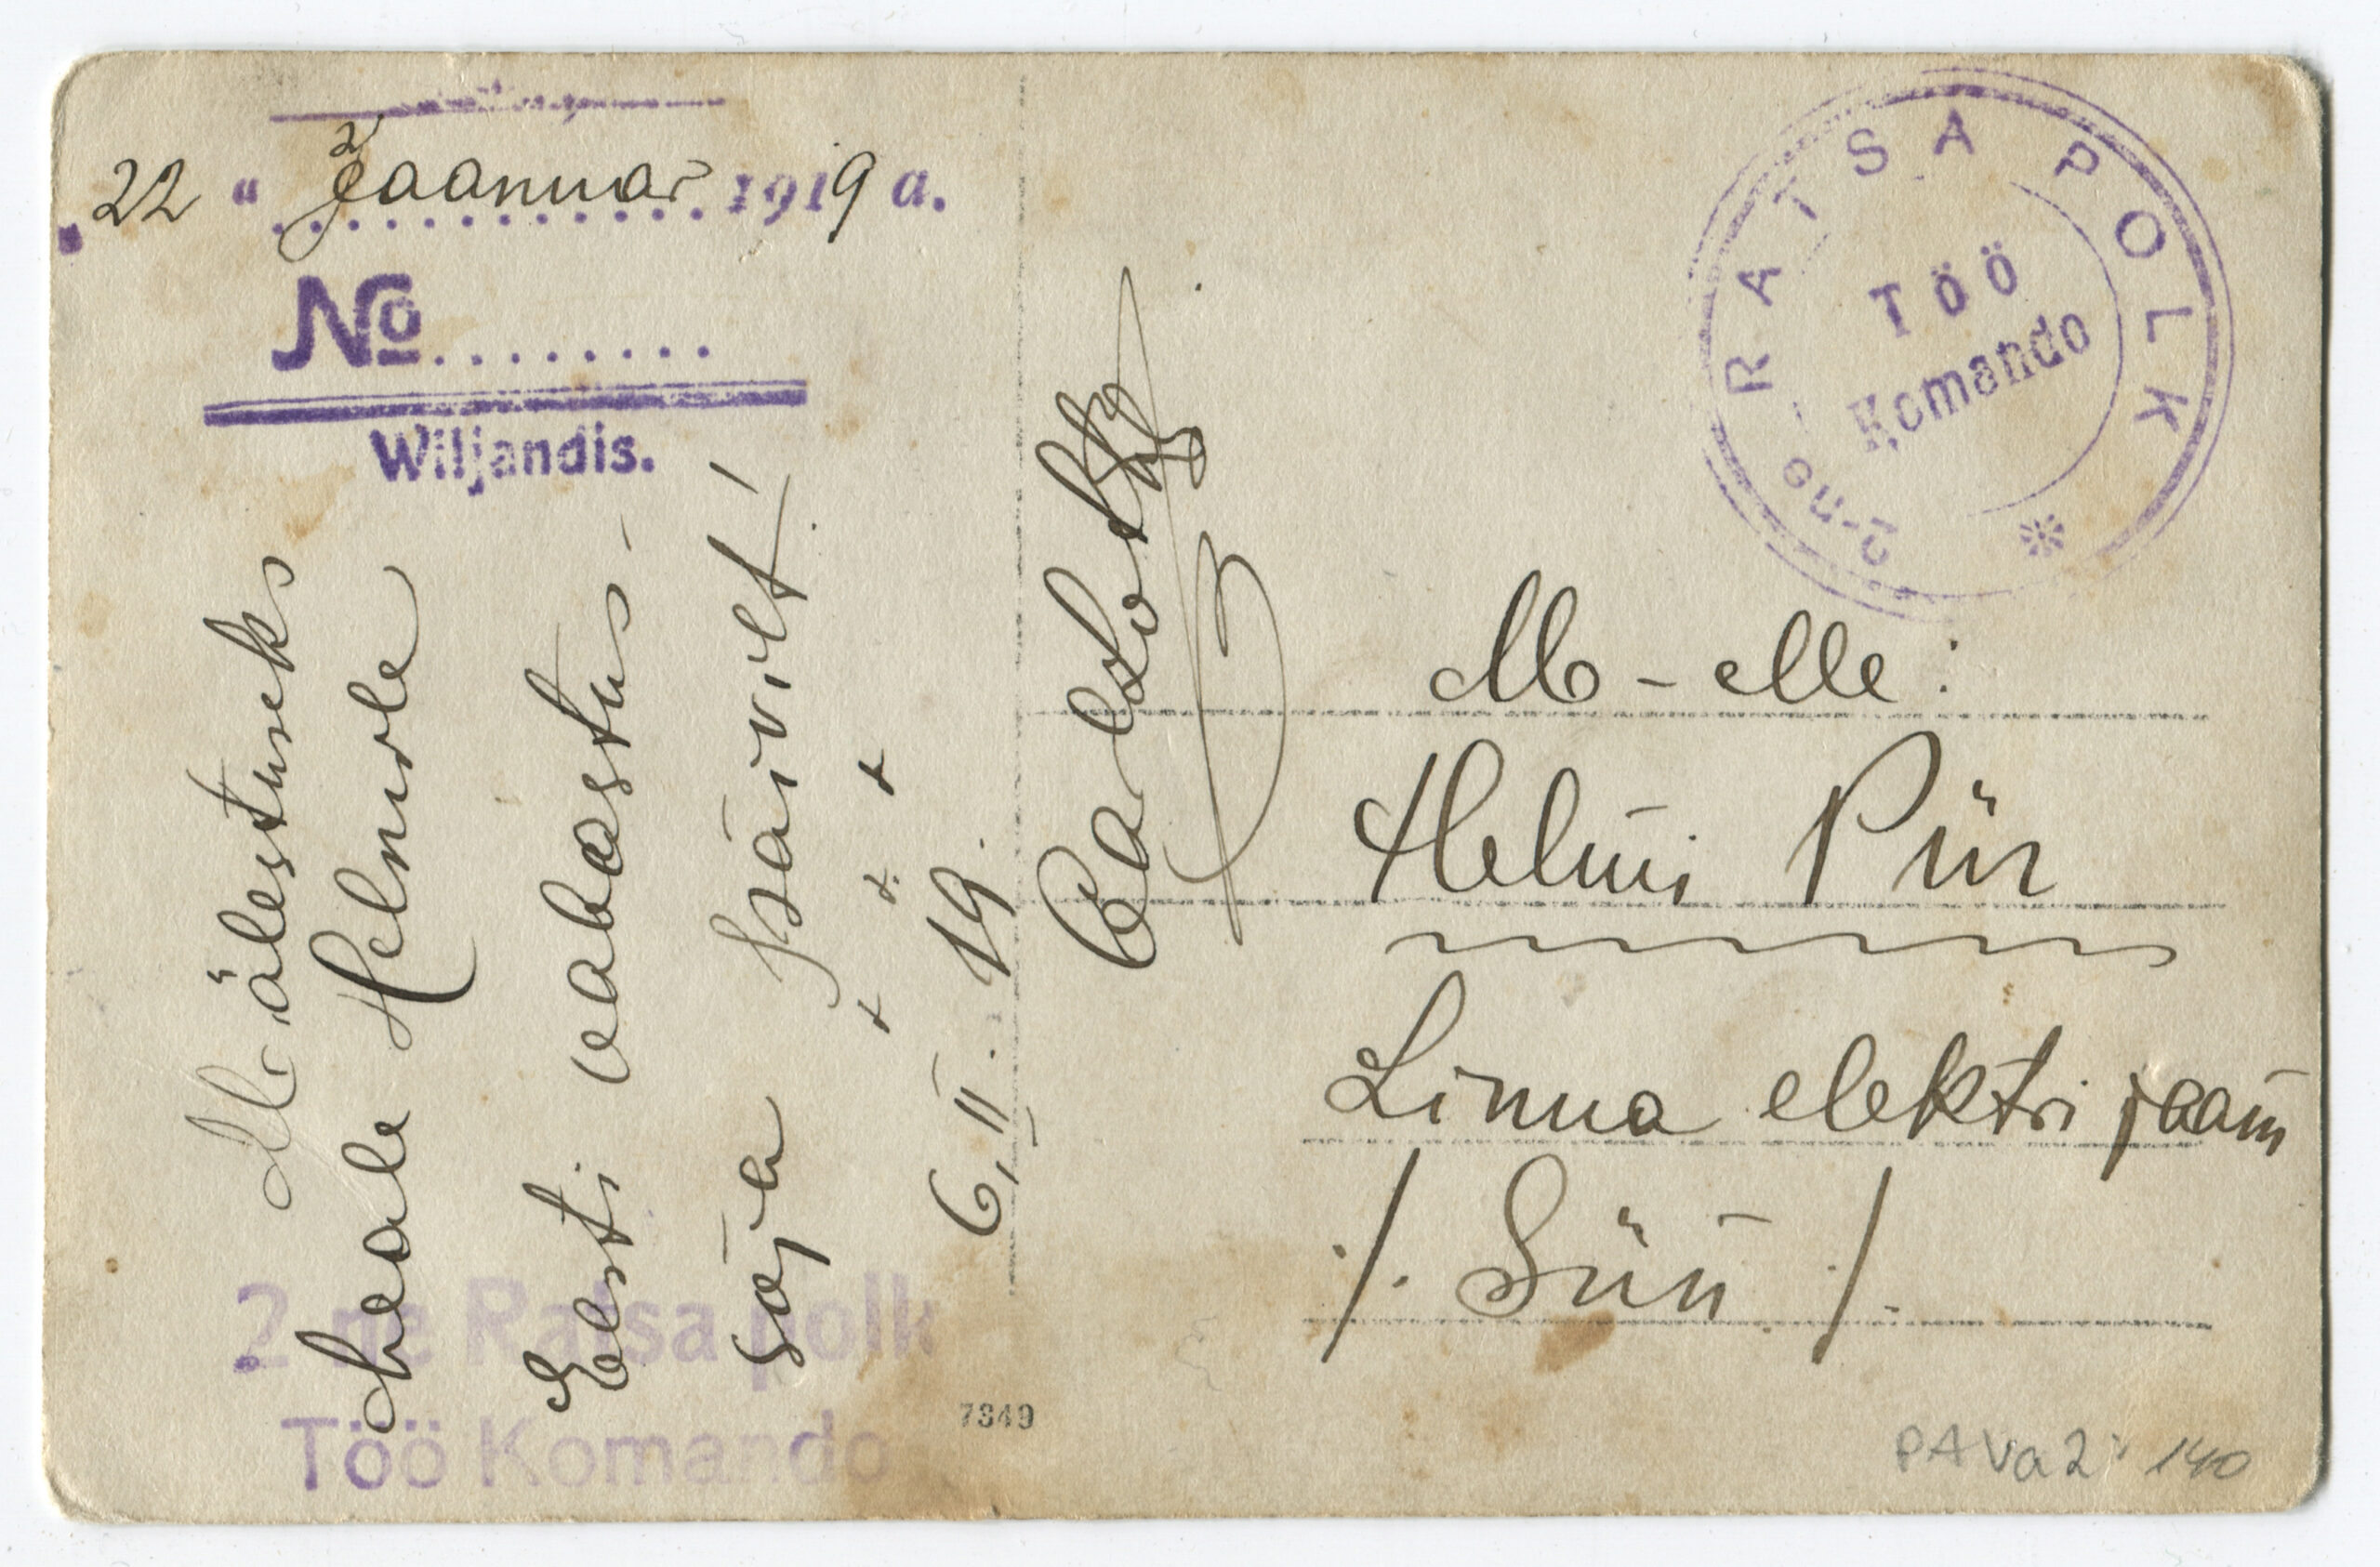 „22 “ Jaanuar 1919 a.
No.........
Wiljandis.
Mälestuseks
heale Helmile
Eesti vabastus-
sõja päivilt!
6, II. 19.
2-ne Ratsa polk
Töö Komando
7349
2-ne RATSA POLK
Töö
Komando
M-elle:
Helmi Pür
Linna elektri jaam
/. Siin /.
PAVa2: 140